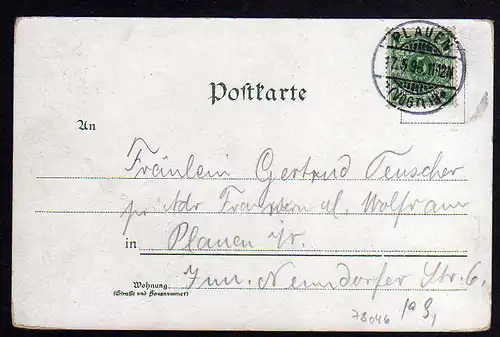 PLAUEN
(VOGTL.)
Postkarte
An
Fräulein Gertrud Teuscher
pr Adr Frau Wolfram
in Plauen i/V.
Wohnung
(Straße und Hausnummer)
Neundorfer Str. 6.
78046